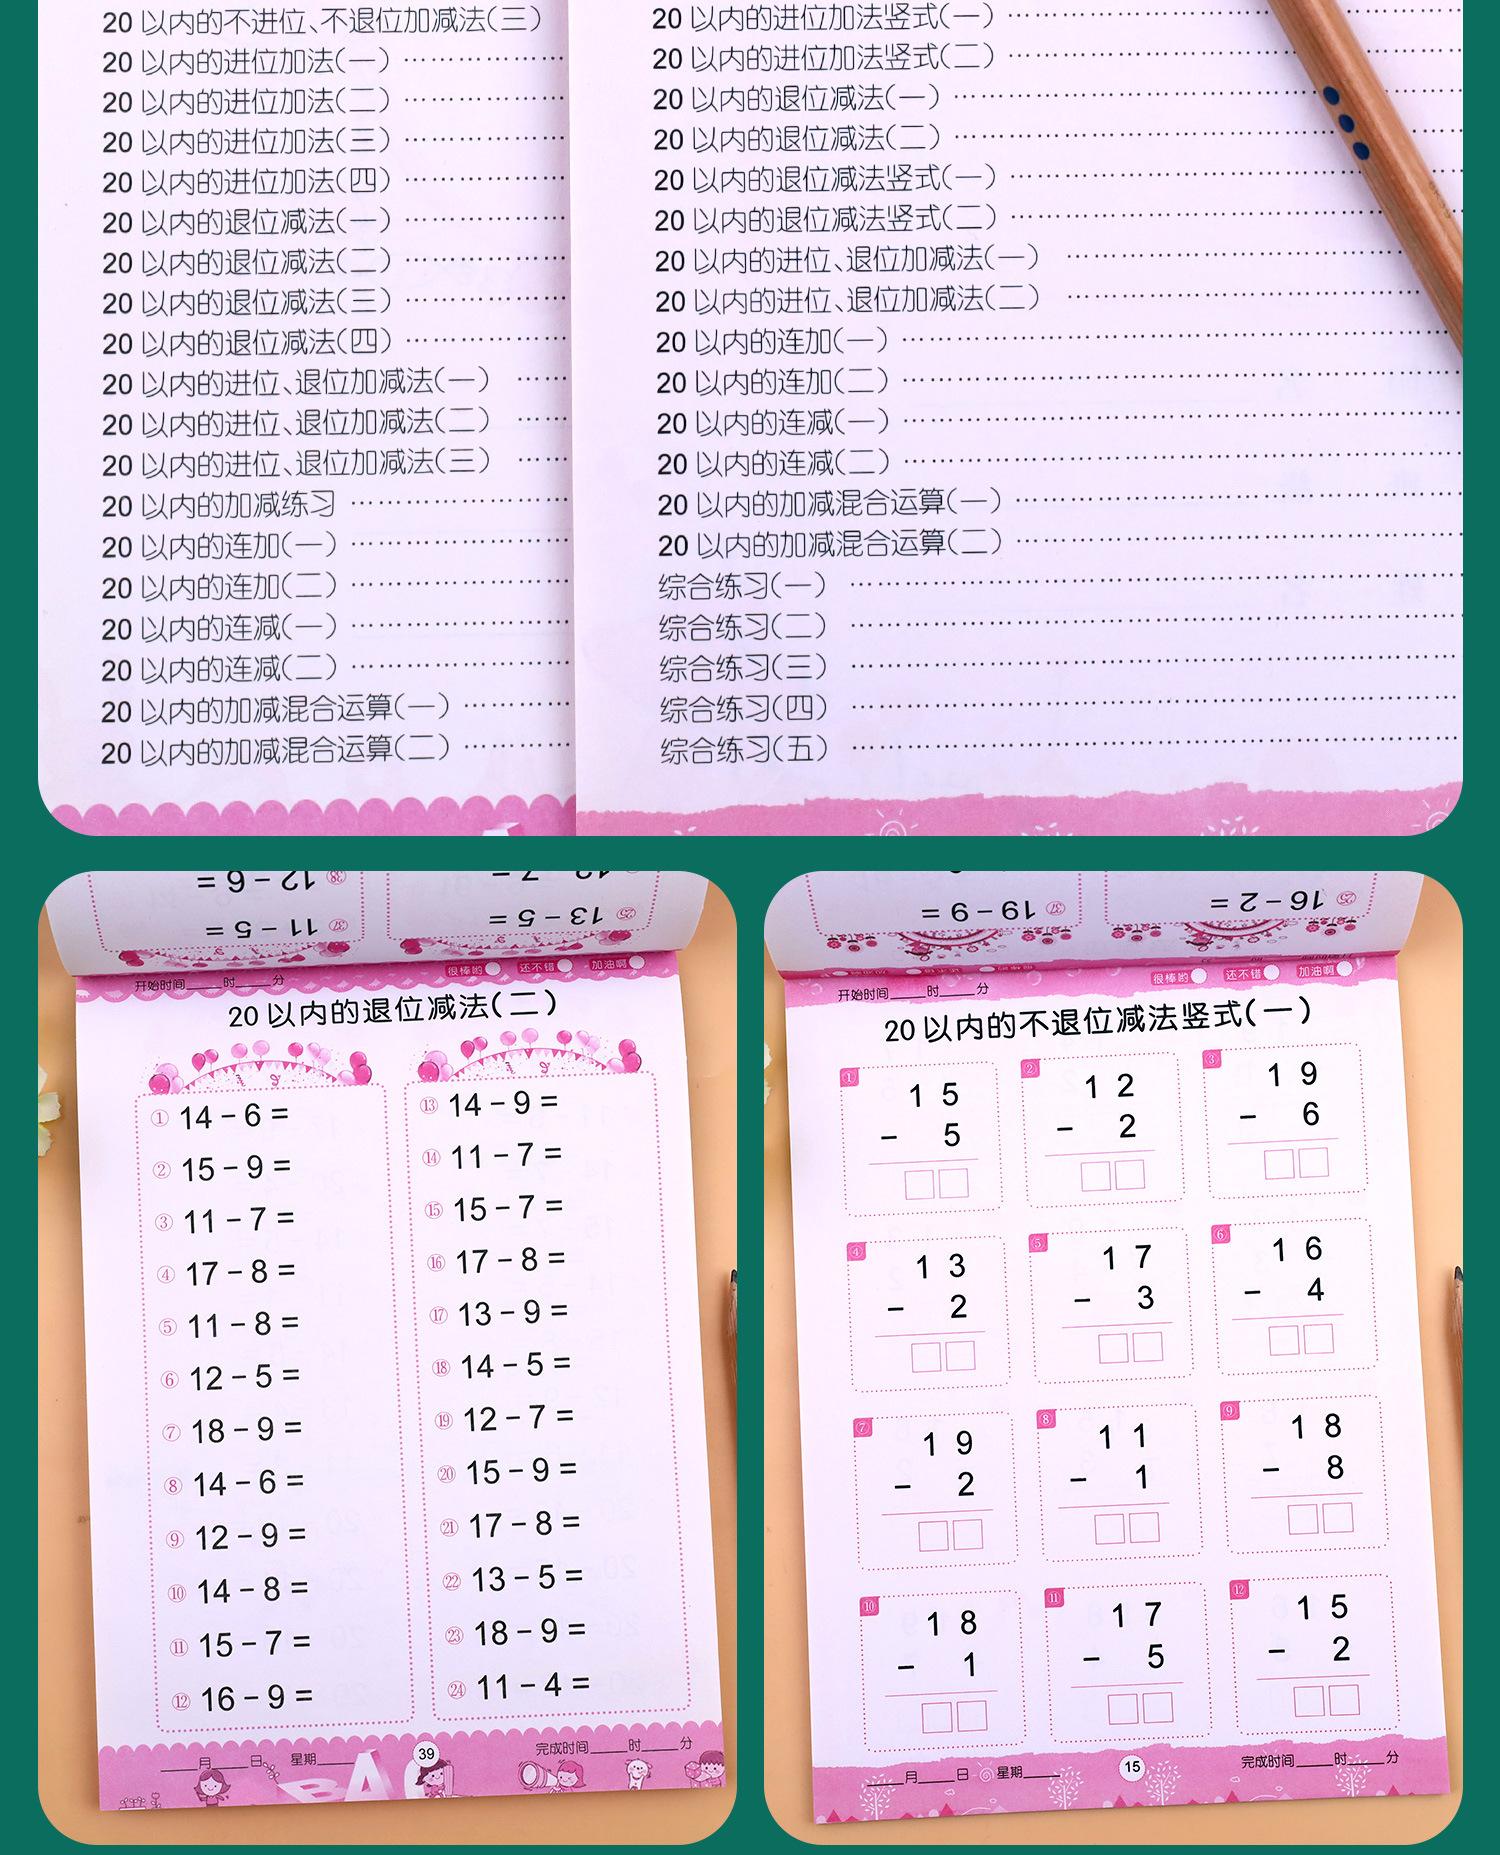 20 以内的不进位、不退位加减法(三)
20 以内的进位加法(一)
20 以内的进位加法(二)
20 以内的进位加法(三)
20 以内的进位加法(四)
20 以内的退位减法(一)
20 以内的退位减法(二)
20 以内的退位减法(三)
20 以内的退位减法(四)
20 以内的进位、退位加减法(一)
20 以内的进位、退位加减法(二)
20 以内的进位、退位加减法(三)
20 以内的加减练习
20 以内的连加(一)
20 以内的连加(二)
20 以内的连减(一)
20 以内的连减(二)
20 以内的加减混合运算(一)
20 以内的加减混合运算(二)
20 以内的进位加法竖式(一)
20 以内的进位加法竖式(二)
20 以内的退位减法(一)
20 以内的退位减法(二)
20 以内的退位减法竖式(一)
20 以内的退位减法竖式(二)
20 以内的进位、退位加减法(一)
20 以内的进位、退位加减法(二)
20 以内的连加(一)
20 以内的连加(二)
20 以内的连减(一)
20 以内的连减(二)
20 以内的加减混合运算(一)
20 以内的加减混合运算(二)
综合练习(一)
综合练习(二)
综合练习(三)
综合练习(四)
综合练习(五)
㊳ 12 − 6 =
㊲ 11 − 5 =
㉕ 13 − 5 =
很棒哟 还不错 加油啊
开始时间____时____分
20 以内的退位减法(二)
① 14 − 6 =
② 15 − 9 =
③ 11 − 7 =
④ 17 − 8 =
⑤ 11 − 8 =
⑥ 12 − 5 =
⑦ 18 − 9 =
⑧ 14 − 6 =
⑨ 12 − 9 =
⑩ 14 − 8 =
⑪ 15 − 7 =
⑫ 16 − 9 =
⑬ 14 − 9 =
⑭ 11 − 7 =
⑮ 15 − 7 =
⑯ 17 − 8 =
⑰ 13 − 9 =
⑱ 14 − 5 =
⑲ 12 − 7 =
⑳ 15 − 9 =
㉑ 17 − 8 =
㉒ 13 − 5 =
㉓ 18 − 9 =
㉔ 11 − 4 =
____月____日 星期____
39
完成时间____时____分
㊲ 19 − 9 =
㉕ 16 − 2 =
很棒哟 还不错 加油啊
开始时间____时____分
20 以内的不退位减法竖式(一)
① ② ③
1 5 1 2 1 9
− 5 − 2 − 6
④ ⑤ ⑥
1 3 1 7 1 6
− 2 − 3 − 4
⑦ ⑧ ⑨
1 9 1 1 1 8
− 2 − 1 − 8
⑩ ⑪ ⑫
1 8 1 7 1 5
− 1 − 5 − 2
____月____日 星期____
15
完成时间____时____分